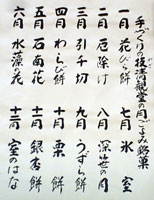 手づくりの技法の観堂の月ごよみ銘菓
一月 花びら餅
二月 厄除け
三月 引千切
四月 わらび餅
五月 石南花
六月 水藻花
七月 氷室
八月 深笠の月
九月 うずら餅
十月 栗餅
十一月 銀杏餅
十二月 室のはな